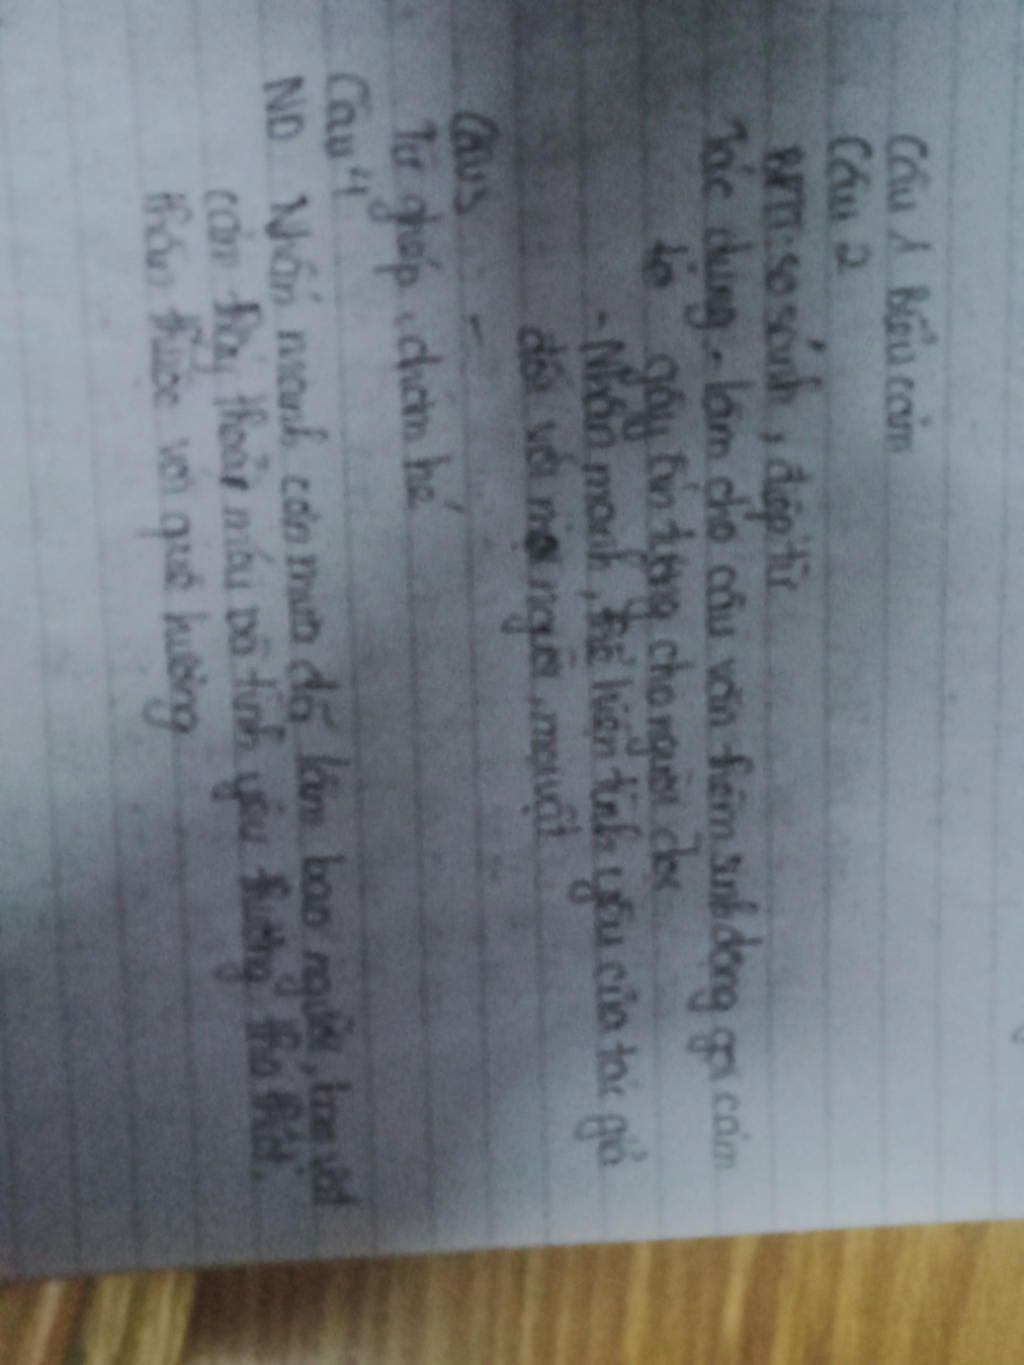 Câu 1 Biểu cảm
Câu 2
BPTT: so sánh, điệp từ
Tác dụng - làm cho câu văn thêm sinh động gợi cảm
gây ấn tượng cho người đọc
- Nhấn mạnh, thể hiện tình yêu của tác giả
đối với mọi người, mọi vật
Câu 3 -
Từ ghép, chăm
Câu 4
ND Nhấn mạnh cơn mưa đã làm bao người, bao vật
cảm thấy thoải mái và tình yêu thương tha thiết
thân thuộc với quê hương